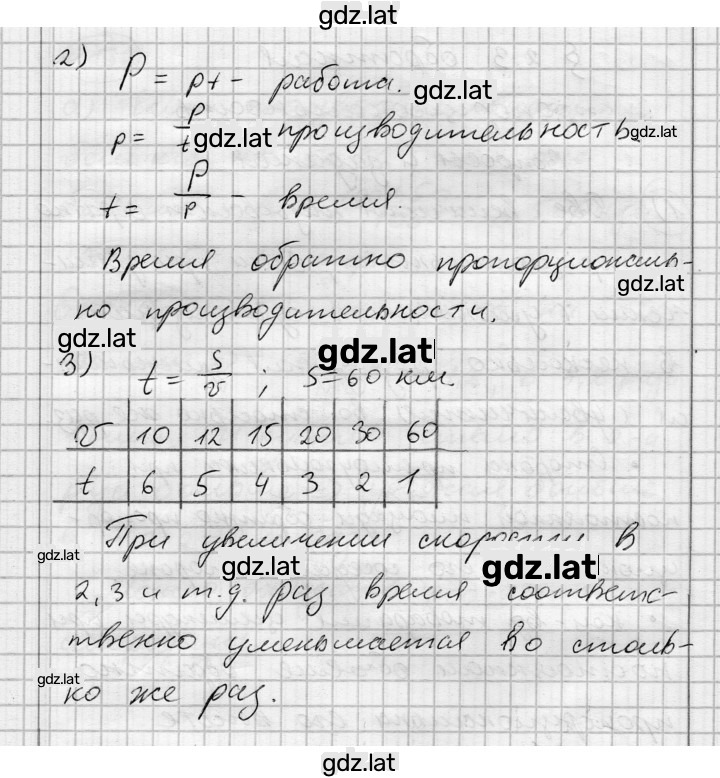 gdz.lat
2) P = pt - работа. gdz.lat
p = P/t gdz.lat производительность gdz.lat
t = P/p - время.
Время обратно пропорциональ-
gdz.lat
но производительности.
gdz.lat gdz.lat
3) t = S/v ; S=60 км.
v 10 12 15 20 30 60
t 6 5 4 3 2 1
При увеличении скорости в
gdz.lat gdz.lat gdz.lat
2, 3 и т.д. раз время соответс-
твенно уменьшается во столь-
gdz.lat
ко же раз.
gdz.lat